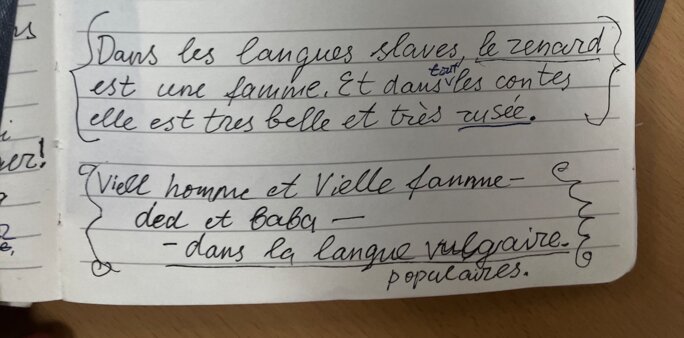 ns
Dans les langues slaves, le renard
est une famme. Et dans tout les contes
elle est tres belle et très rusée.
er!
Viell homme et Vielle famme -
ded et baba —
- dans la langue vulgaire.
populaires.